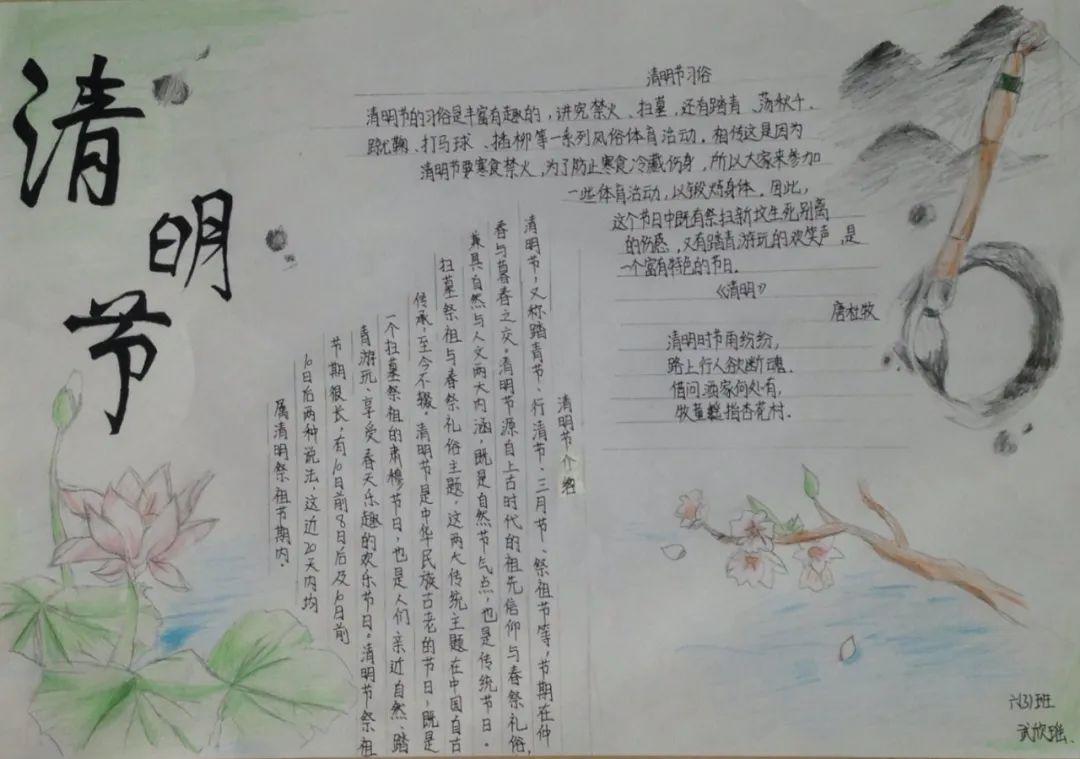 清明节
清明节习俗
清明节的习俗是丰富有趣的，讲究禁火、扫墓，还有踏青、荡秋千、
蹴鞠、打马球、插柳等一系列风俗体育活动。相传这是因为
清明节要寒食禁火，为了防止寒食冷藏伤身，所以大家来参加
一些体育活动，以锻炼身体。因此，
这个节日中既有祭扫新坟生死别离
的伤感，又有踏青游玩的欢笑声，是
一个富有特色的节日。
《清明》
唐杜牧
清明时节雨纷纷，
路上行人欲断魂。
借问酒家何处有，
牧童遥指杏花村．
清明节介绍
清明节，又称踏青节、行清节、三月节、祭祖节等，节期在仲
春与暮春之交。清明节源自上古时代的祖先信仰与春祭礼俗，
兼具自然与人文两大内涵，既是自然节气点，也是传统节日。
扫墓祭祖与春祭礼俗主题，这两大传统主题在中国自古
传承，至今不辍。清明节是中华民族古老的节日，既是
一个扫墓祭祖的肃穆节日，也是人们亲近自然、踏
青游玩、享受春天乐趣的欢乐节日。清明节祭祖
节期很长，有10日前8日后及10日前
10日后两种说法，这近20天内均
属清明祭祖节期内．
六(3)班
武欣瑶．